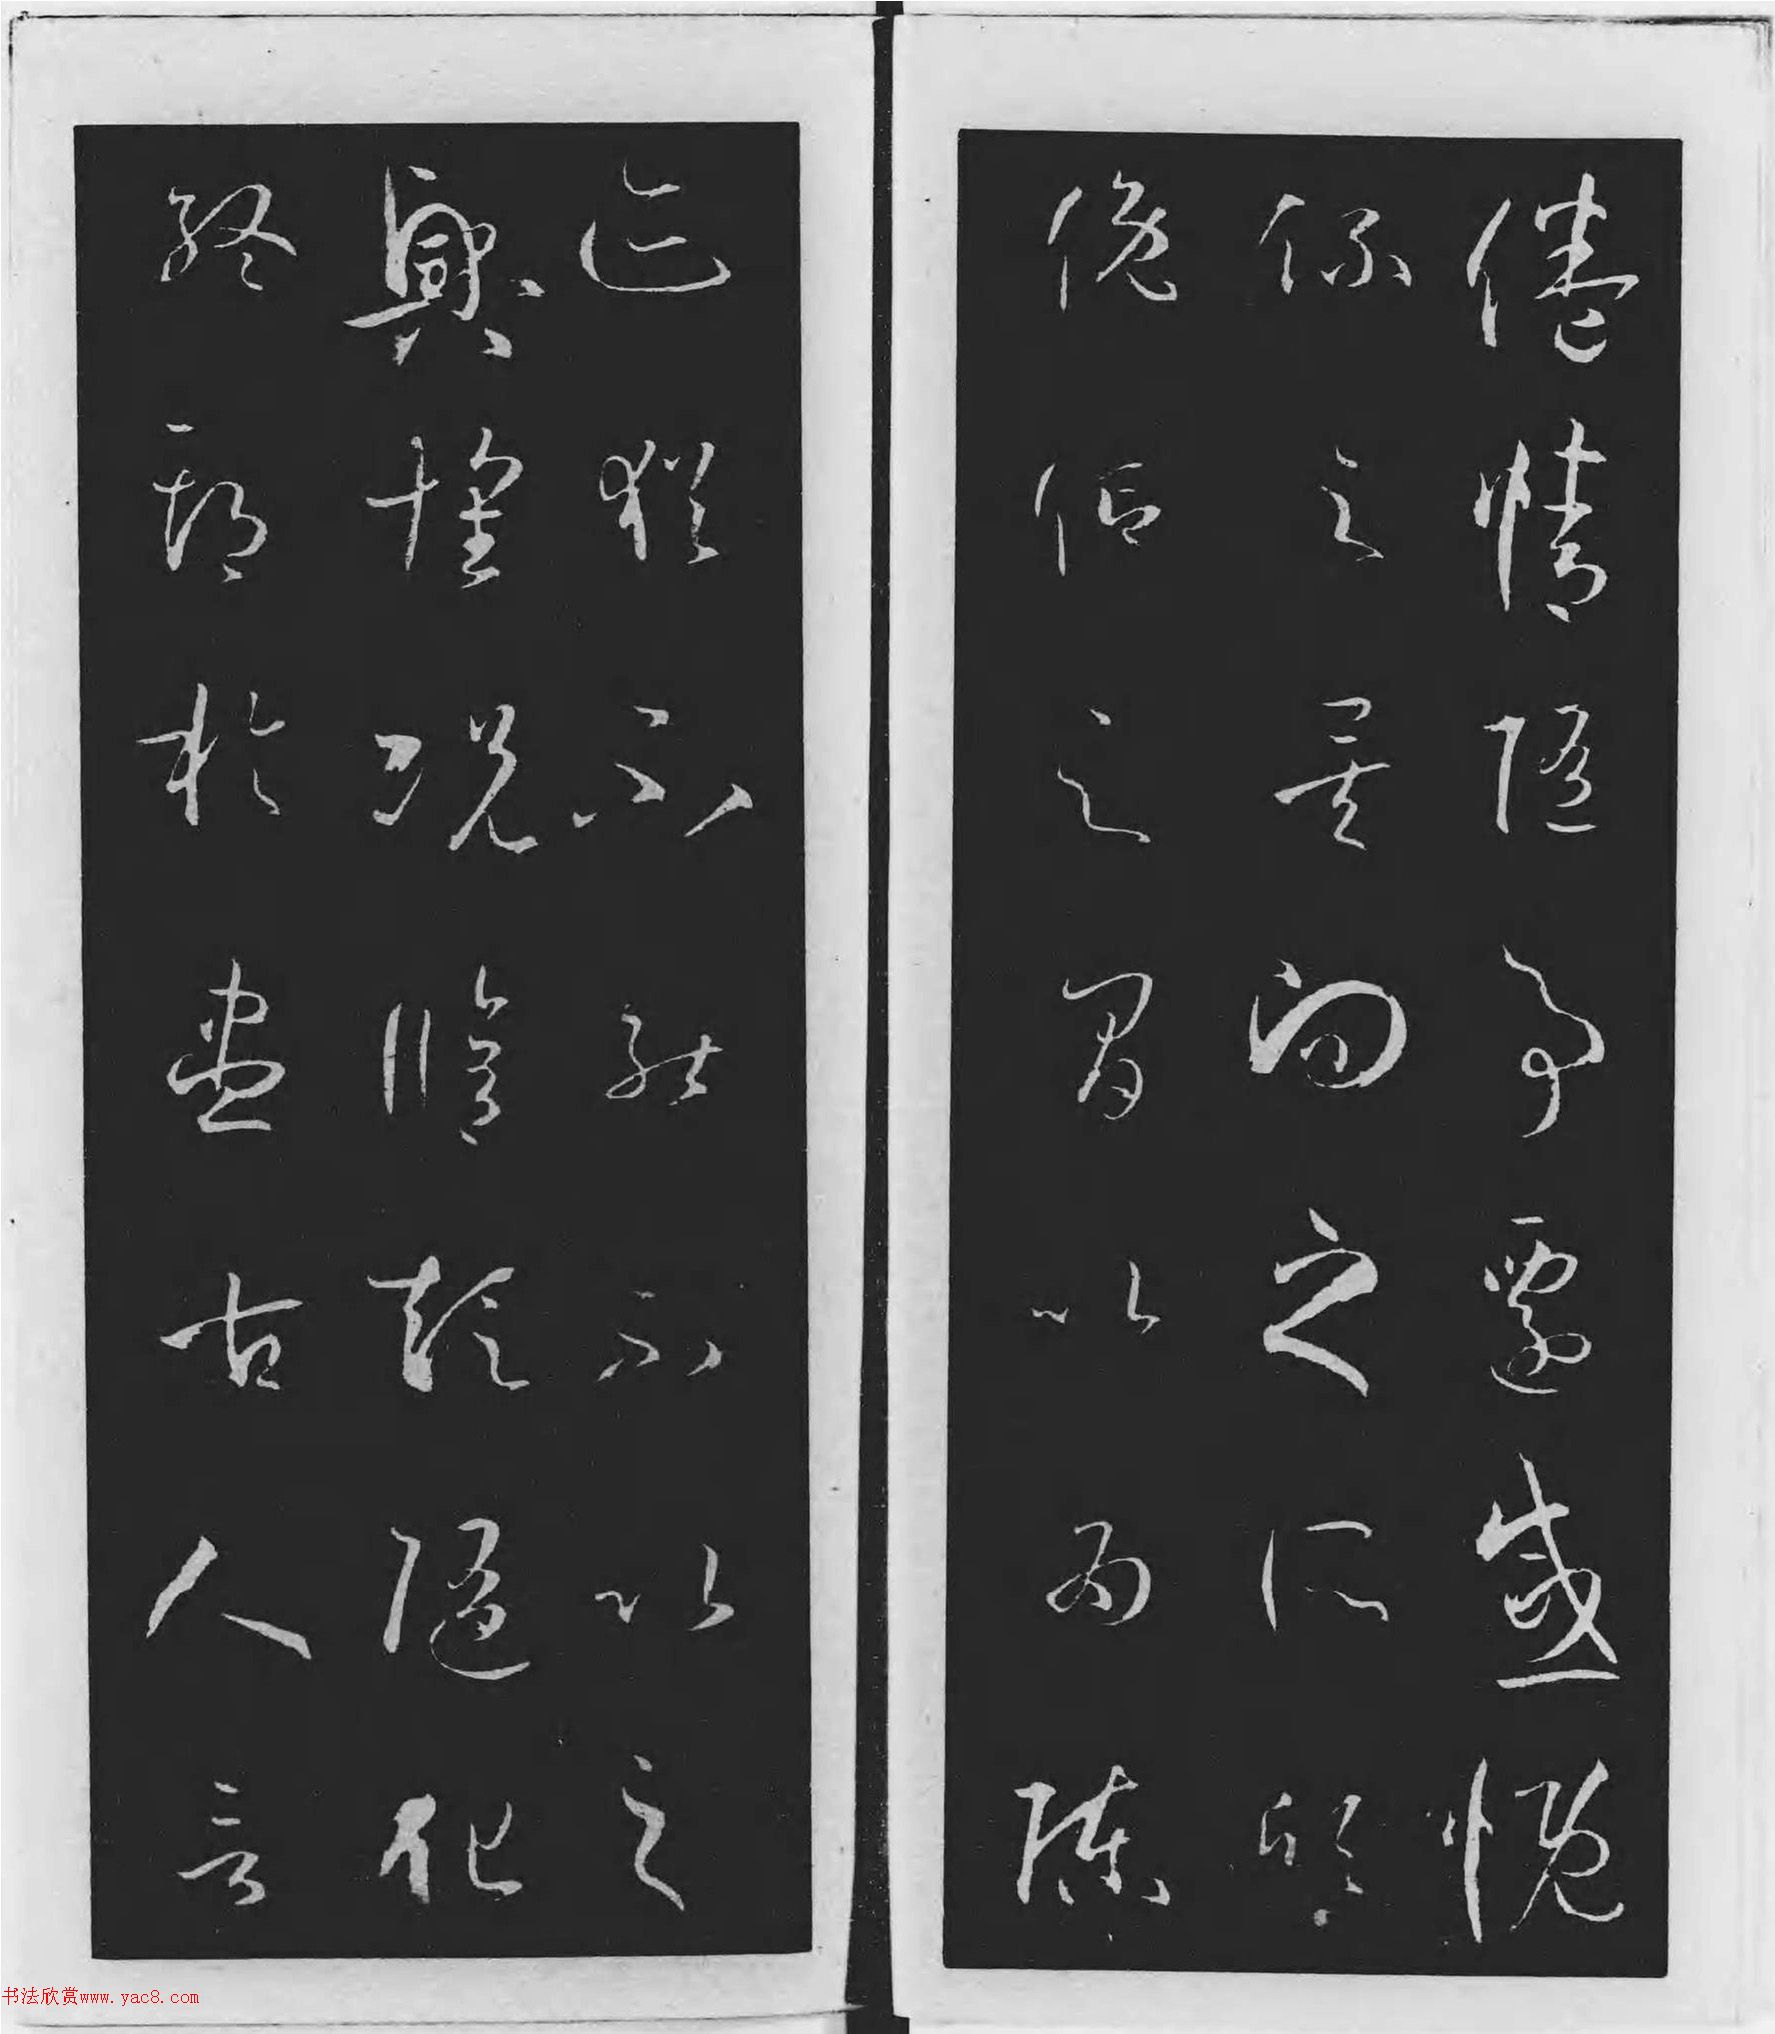 倦情隨事遷感慨
係之矣向之所欣
俛仰之間以為陳
迹猶不能不以之
興懷況脩短隨化
終期於盡古人云
书法欣赏www.yac8.com